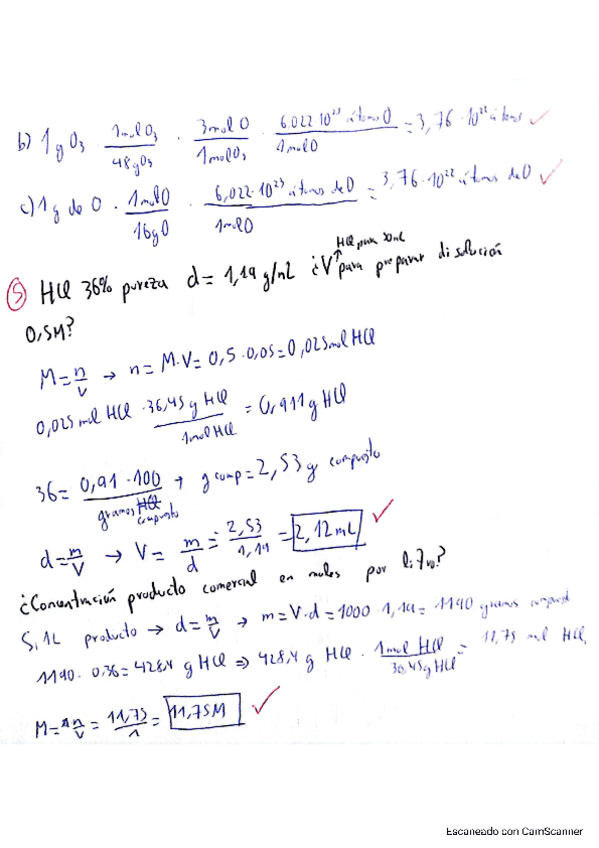 b) 1 g O₃ · 1mol O₃ / 48 g O₃ · 3mol O / 1mol O₃ · 6.022·10²³ átomos O / 1mol O = 3,76·10²² átomos ✓
c) 1 g de O · 1mol O / 16 g O · 6,022·10²³ átomos de O / 1mol O = 3,76·10²² átomos de O ✓
HCl para 50 mL
⑤ HCl 36% pureza d = 1,19 g/mL ¿V para preparar disolución
0,5M?
M = n/V → n = M·V = 0,5·0,05 = 0,025 mol HCl
0,025 mol HCl · 36,45 g HCl / 1mol HCl = 0,911 g HCl
36 = 0,91·100 / gramos compuesto → g comp = 2,53 g compuesto
d = m/V → V = m/d = 2,53 / 1,19 = 2,12 mL ✓
¿Concentración producto comercial en moles por litro?
Si 1L producto → d = m/V → m = V·d = 1000·1,19 = 1190 gramos
1190·0,36 = 428,4 g HCl ⇒ 428,4 g HCl · 1mol HCl / 36,45 g HCl = 11,75 mol HCl
M = n/V = 11,75 / 1 = 11,75M ✓
Escaneado con CamScanner